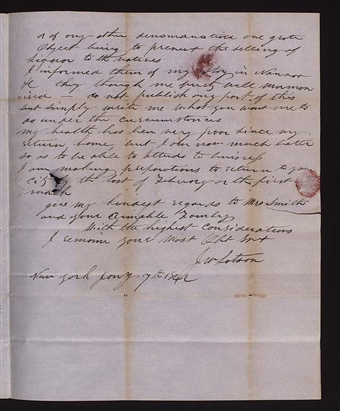 or of any other denomination one grote
Object being to prevent the selling of
liquor to the natives
I informed them of my Stay in Nauvoo
&c they think me fully will mormon
ised — do not publish any part of this
but simply write me what you want me to
do under the circumstances
my health has been very poor since my
return home, but I am now much better
so as to be able to attend to buisness
I am making preparations to return to your
City the last of February or the first
march
give my kindest regards to Mrs Smith
and your Aimable Family
With the highest Considerations
I remain your Most Obt Svt
New york Jany 7th 1842